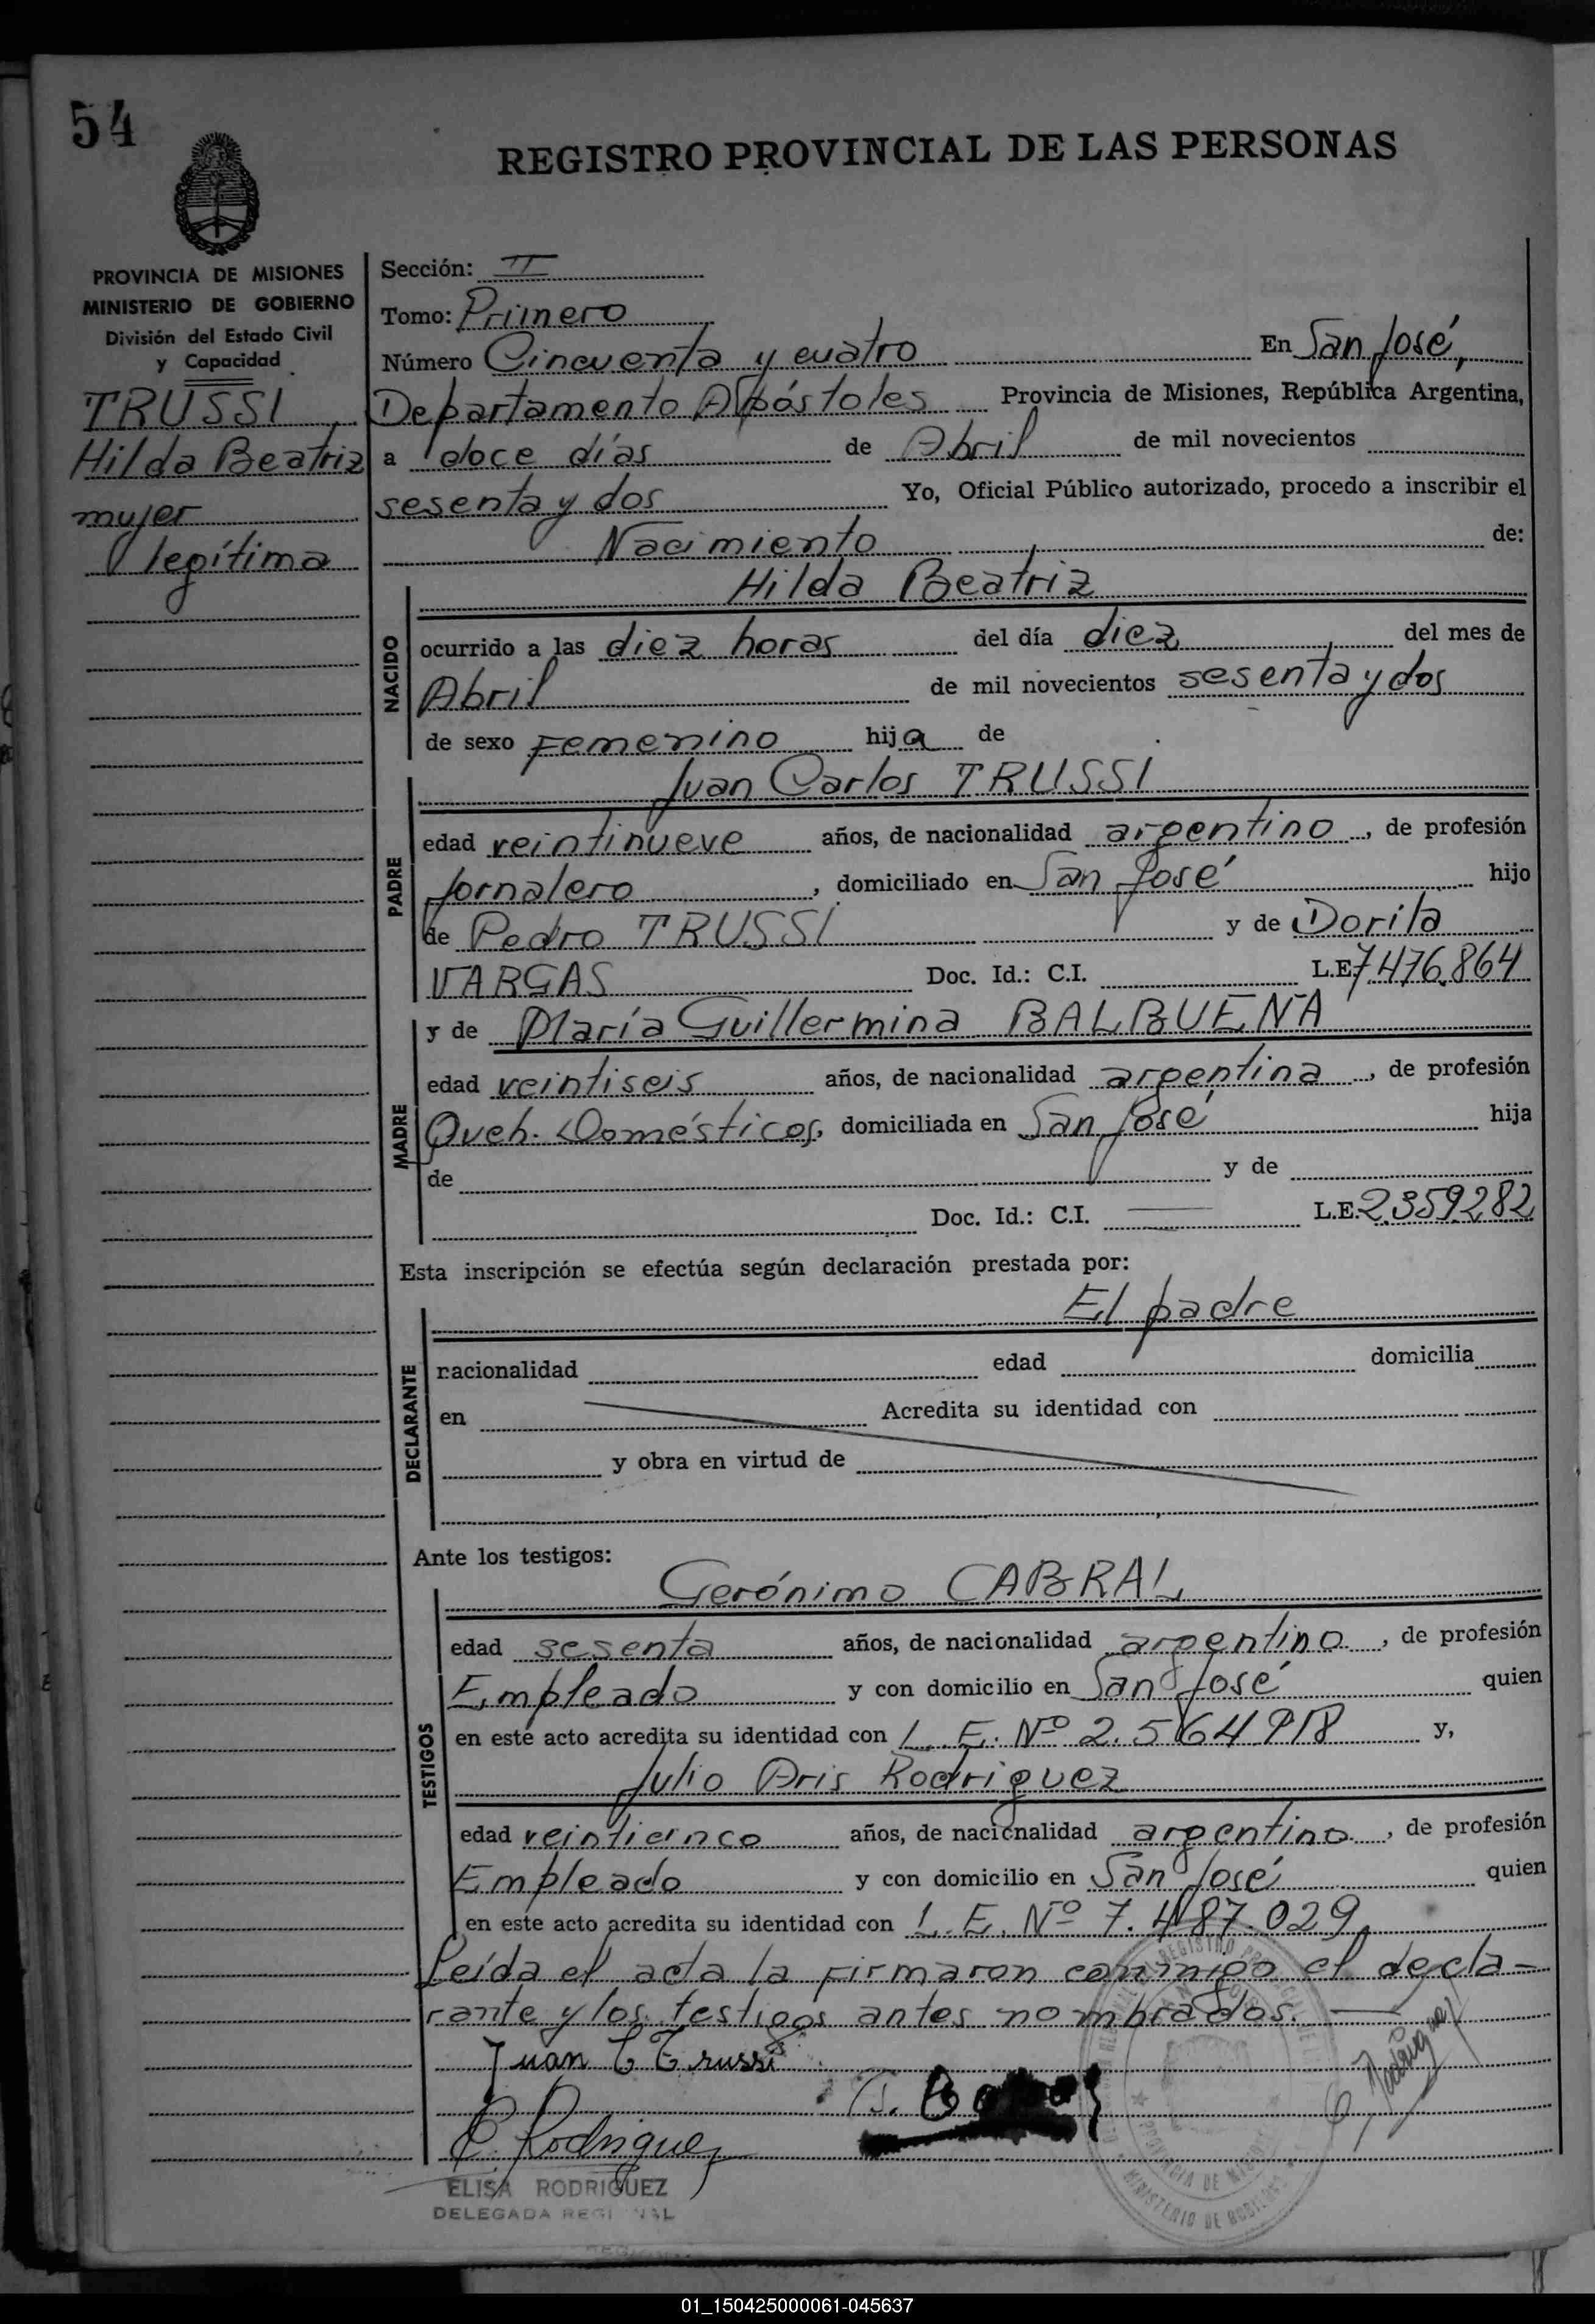 54
REGISTRO PROVINCIAL DE LAS PERSONAS
PROVINCIA DE MISIONES
MINISTERIO DE GOBIERNO
División del Estado Civil
y Capacidad
TRUSSI
Hilda Beatriz
mujer
legítima
Sección: II
Tomo: Primero
Número Cincuenta y cuatro En San José,
Departamento Apóstoles Provincia de Misiones, República Argentina,
a doce días de Abril de mil novecientos
sesenta y dos Yo, Oficial Público autorizado, procedo a inscribir el
Nacimiento de:
NACIDO
Hilda Beatriz
ocurrido a las diez horas del día diez del mes de
Abril de mil novecientos sesenta y dos
de sexo Femenino hija de
PADRE
Juan Carlos TRUSSI
edad veintinueve años, de nacionalidad argentino, de profesión
Jornalero, domiciliado en San José hijo
de Pedro TRUSSI y de Dorila
VARGAS Doc. Id.: C.I. L.E. 7.476.864
MADRE
y de María Guillermina BALBUENA
edad veintiseis años, de nacionalidad argentina, de profesión
Queh. Domésticos, domiciliada en San José hija
de y de
Doc. Id.: C.I. L.E. 2.359.282
Esta inscripción se efectúa según declaración prestada por:
DECLARANTE
El padre
nacionalidad edad domicilia
en Acredita su identidad con
y obra en virtud de
Ante los testigos:
TESTIGOS
Gerónimo CABRAL
edad sesenta años, de nacionalidad argentino, de profesión
Empleado y con domicilio en San José quien
en este acto acredita su identidad con L.E. Nº 2.564.918 y,
Julio Aris Rodriguez
edad veinticinco años, de nacionalidad argentino, de profesión
Empleado y con domicilio en San José quien
en este acto acredita su identidad con L.E. Nº 7.487.029,
Leída el acta la firmaron conmigo el decla-
rante y los testigos antes nombrados.
Juan C Trussi
Rodriguez
E. Rodriguez
ELISA RODRIGUEZ
DELEGADA REGIONAL
PROVINCIA DE MISIONES
MINISTERIO DE GOBIERNO
01_150425000061-045637